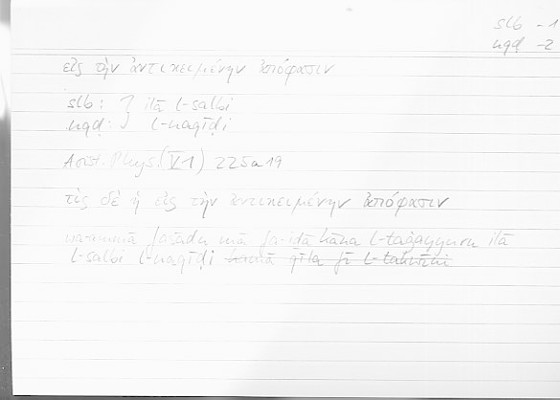 slb - 1
nqḍ - 2
εἰς τὴν ἀντικειμένην ἀπόφασιν
slb: } ilā l-salbi
nqḍ: } l-naqīḍi
Arist. Phys. (V 1) 225a19
τὶς δὲ ἡ εἰς τὴν ἀντικειμένην ἀπόφασιν
wa-ammā fasādu mā fa-iḏā kāna l-taġayyuru ilā
l-salbi l-naqīḍi kamā qīla fī l-takwīni